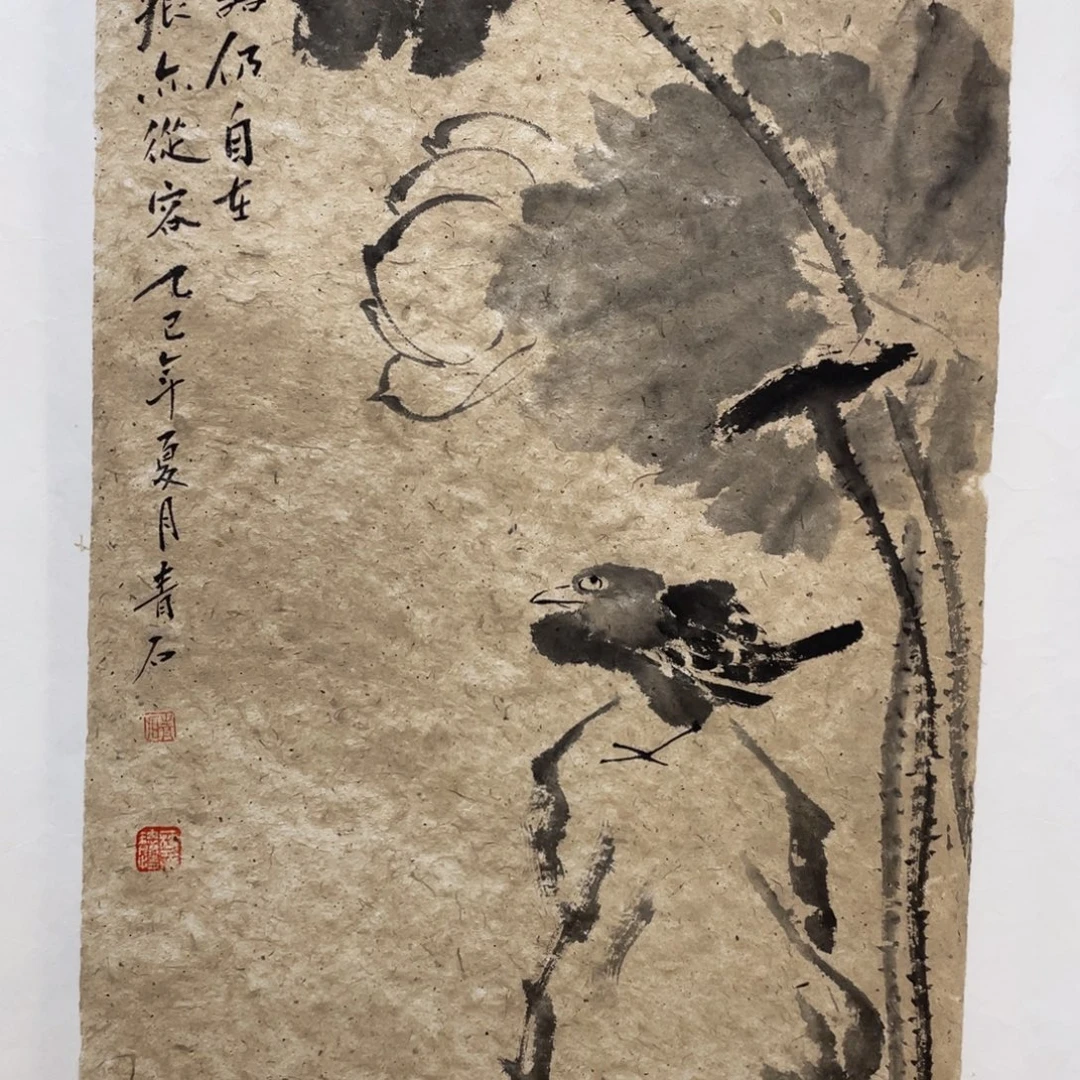 仍自在
亦從容
乙巳年夏月青石